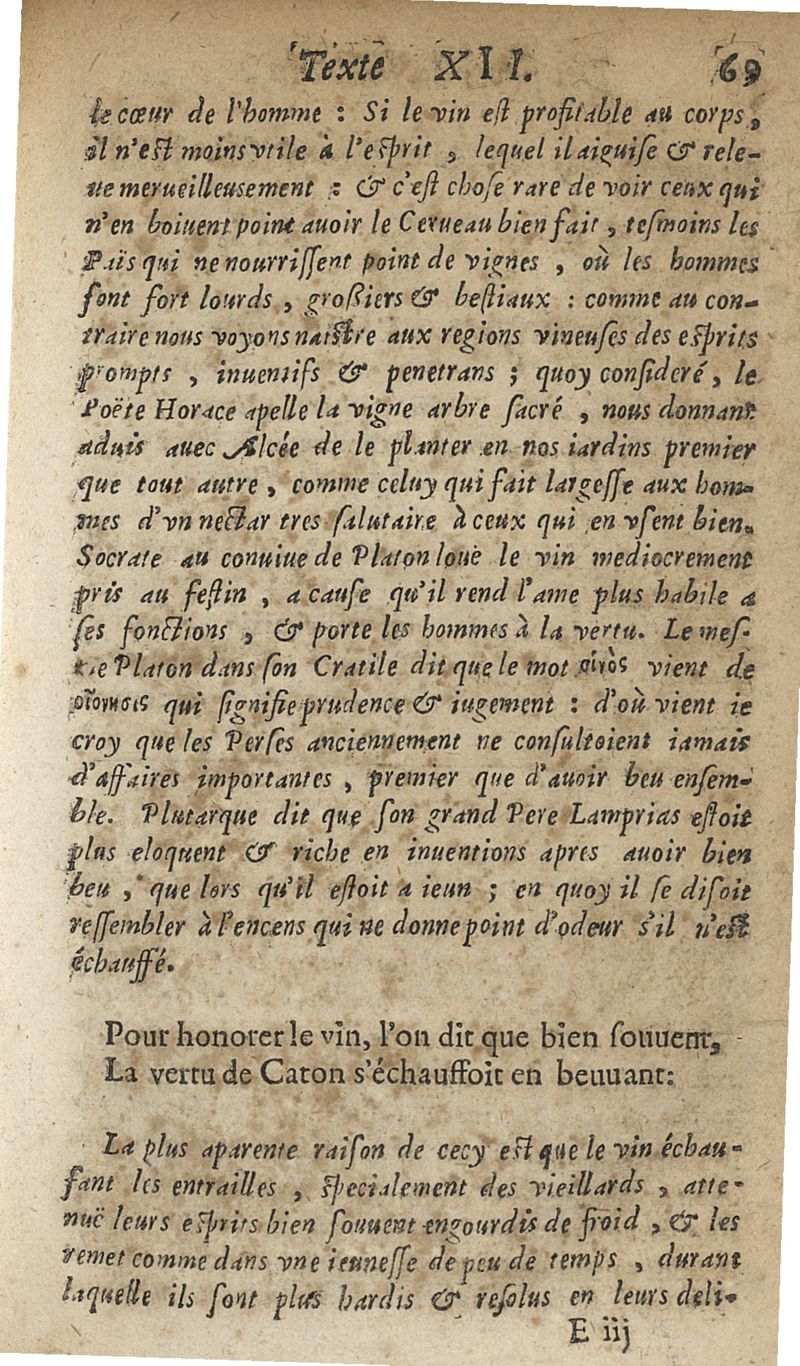 Texte XII. 69
le cœur de l'homme : Si le vin eſt profitable au corps,
il n'eſt moins vtile à l'eſprit, lequel il aiguiſe & rele-
ue merueilleusement : & c'eſt choſe rare de voir ceux qui
n'en boiuent point auoir le Cerueau bien fait, teſmoins les
Païs qui ne nourriſſent point de vignes, où les hommes
ſont fort lourds, groſſiers & beſtiaux : comme au con-
traire nous voyons naiſtre aux regions vineuſes des eſprits
prompts, inuentifs & penetrans ; quoy conſideré, le
Poëte Horace apelle la vigne arbre ſacré, nous donnant
aduis auec Alcée de le planter en nos iardins premier
que tout autre, comme celuy qui fait largeſſe aux hom-
mes d'vn nectar tres ſalutaire à ceux qui en vſent bien.
Socrate au conuiue de Platon louë le vin mediocrement
pris au feſtin, a cauſe qu'il rend l'ame plus habile a
ſes fonctions, & porte les hommes à la vertu. Le meſ-
me Platon dans ſon Cratile dit que le mot οἶνὸς vient de
οἴονησις qui ſignifie prudence & iugement : d'où vient ie
croy que les Perſes anciennement ne conſultoient iamais
d'affaires importantes, premier que d'auoir beu enſem-
ble. Plutarque dit que ſon grand Pere Lamprias eſtoit
plus eloquent & riche en inuentions apres auoir bien
beu, que lors qu'il eſtoit a ieun ; en quoy il ſe diſoit
reſſembler à l'encens qui ne donne point d'odeur s'il n'eſt
échauffé.
Pour honorer le vin, l'on dit que bien ſouuent,
La vertu de Caton s'échauffoit en beuuant:
La plus aparente raiſon de cecy eſt que le vin échau-
fant les entrailles, ſpecialement des vieillards, atte-
nuë leurs eſprits bien ſouuent engourdis de froid, & les
remet comme dans vne ieuneſſe de peu de temps, durant
laquelle ils ſont plus hardis & reſolus en leurs deli-
E iij